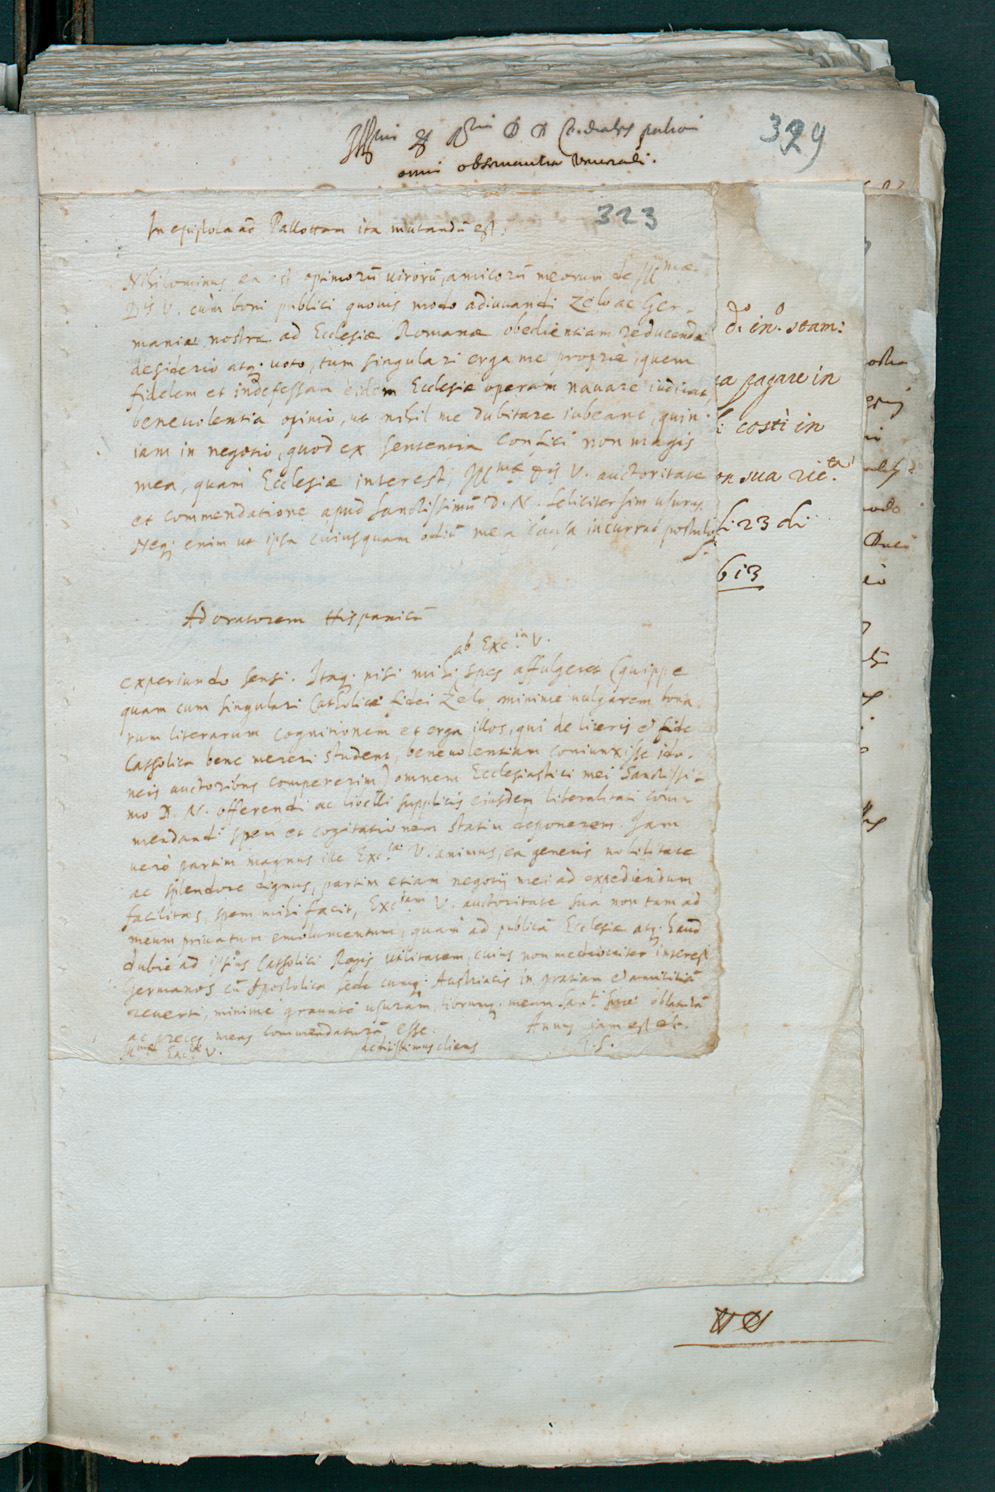 329
omni observantia venerandi.
323
In epistola ad Pallottam ita mutandū est,
Nihilominus ea est optimorū virorū, amicorū meorum de Illmæ
Dis V. cùm boni publici quovis modo adiuuandi zelo ac Ger-
maniæ nostræ ad Ecclesiæ Romanæ obedientiam reducendæ
desiderio atq; voto, tum singulari erga me propriè, quem
fidelem et indefessam eidem Ecclesiæ operam nauare iudicat,
beneuolentia opinio, ut nihil me dubitare iubeant, quin
iam in negotio, quod ex sententia confici non magis
mea, quàm Ecclesiæ interest, Illmæ Dis V. auctoritate
et commendatione apud Sanctissimū D. N. feliciter sim usurus.
Neq; enim ut ipsa cuiusquam odiū mea causa incurrat postulo
Ad oratorem Hispanicū
ab Exc.ia V.
experiundo sensi. Itaq; nisi mihi spes affulgeret (quippe
quam cum singulari Catholicæ fidei zelo minime vulgarem bona-
rum literarum cognitionem et erga illos, qui de literis et fide
Catholica bene mereri student, beneuolentiam coniunxisse ido-
neis auctoribus compererim) omnem Ecclesiastici mei Sanctissi-
mo D. N. offerendi ac libelli supplicis eiusdem liberalitati com-
mendandi spem et cogitationem statim deponerem. Jam
verò partim magnus ille Exc.iæ V. animus, ea generis nobilitate
ac splendore dignus, partim etiam negotij mei ad expediendum
facilitas, spem mihi facit, Exc.iam V. auctoritate sua non tam ad
meum priuatum emolumentum, quàm ad publicā Ecclesiæ atq; haud
dubiè ad ipsius Catholici Regis utilitatem, cuius non mediocriter interest
Germanos cū Apostolica sede cumq; Austriacis in gratiam et amicitiā
reuerti, minime grauatè usuram, librumq; meum
ac preces meas commendaturā esse.
Annus iam est etc.
Exc.iæ V.
addictissimus cliens
G. S.
di in.o stam:
pagare in
costì in
sua ric.ta
23 di
613